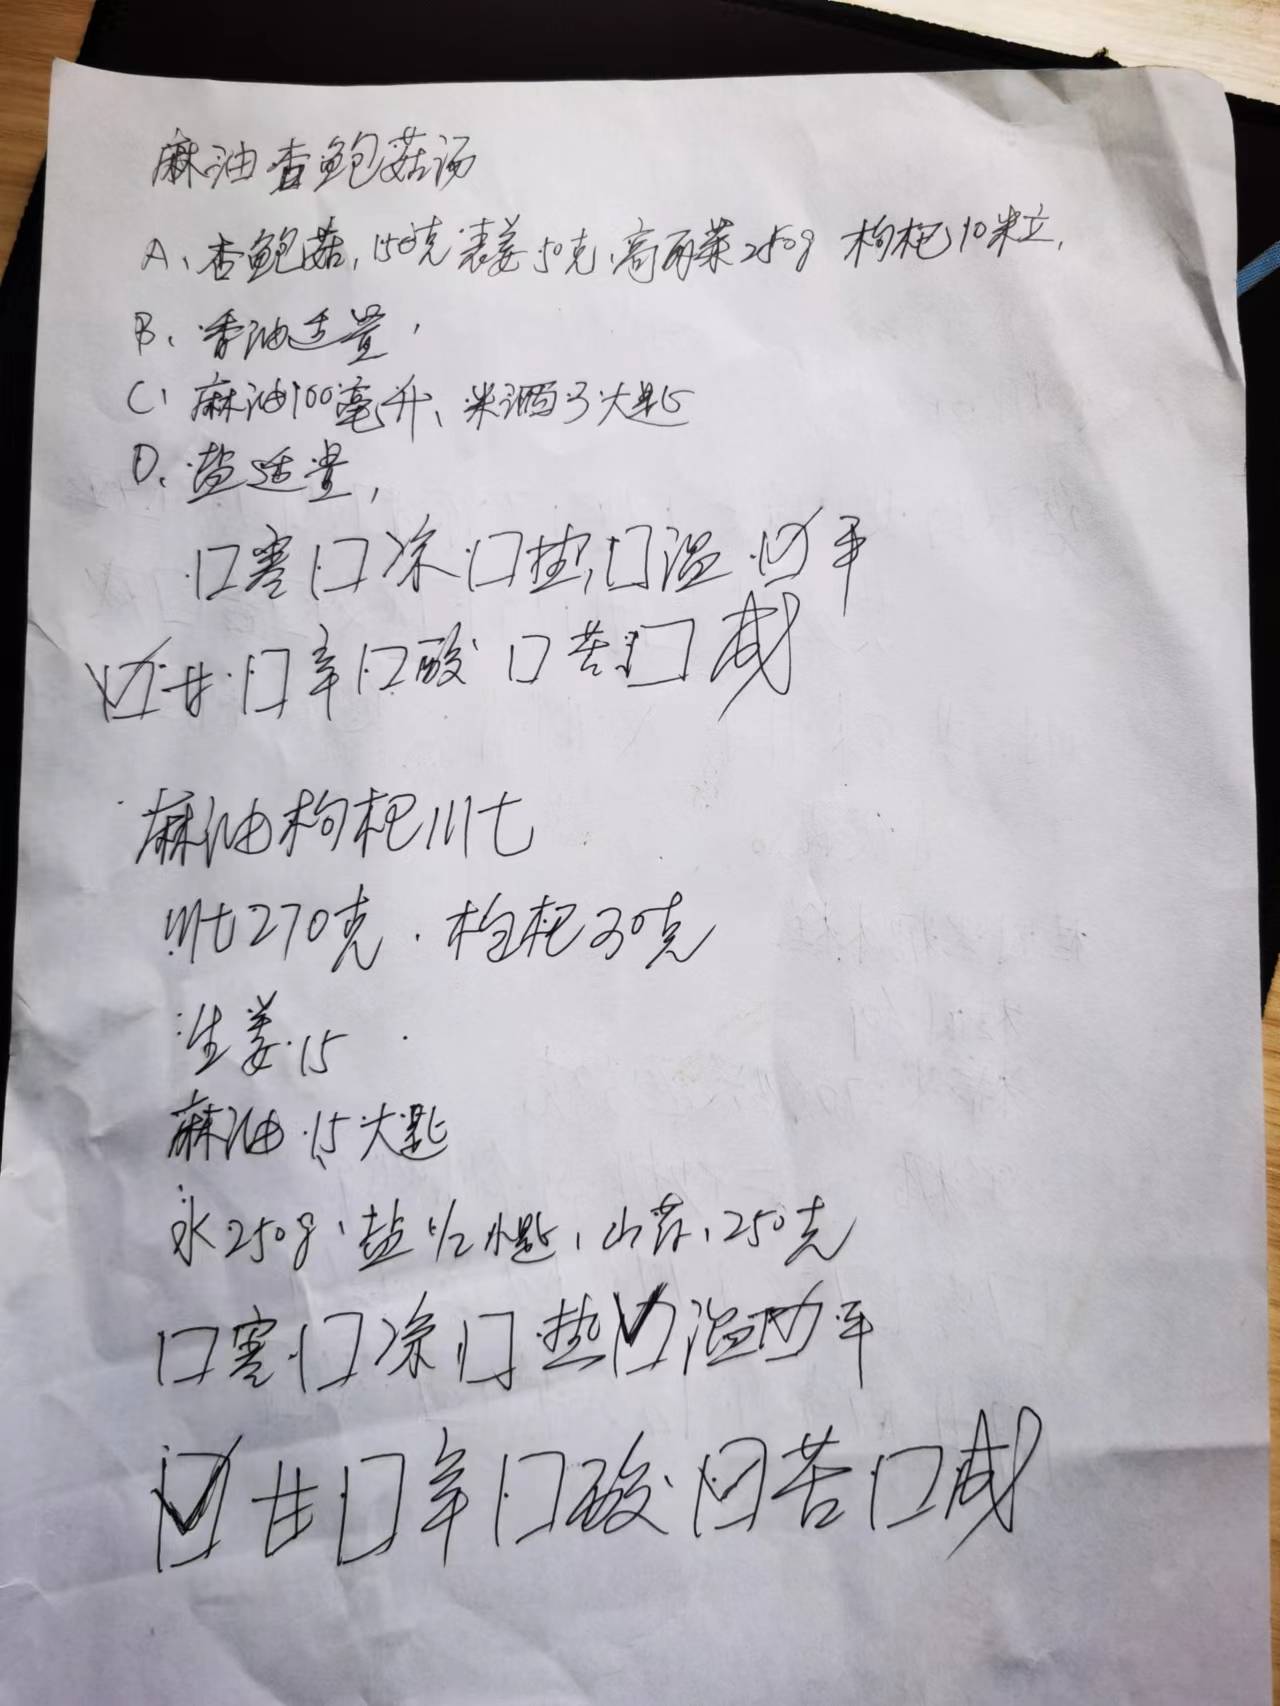 麻油杏鲍菇汤
A、杏鲍菇,150克 老姜50克、高丽菜250g 枸杞10粒,
B、香油适量,
C、麻油100毫升、米酒3大匙
D、盐适量,
口寒口凉口热口温☑平
☑甘口辛口酸口苦口咸
麻油枸杞川七
川七270克.枸杞30克
生姜.15
麻油.15大匙
水250g、盐1/2小匙、山药、250克
口寒口凉口热☑温☑平
☑甘口辛口酸☑苦口咸